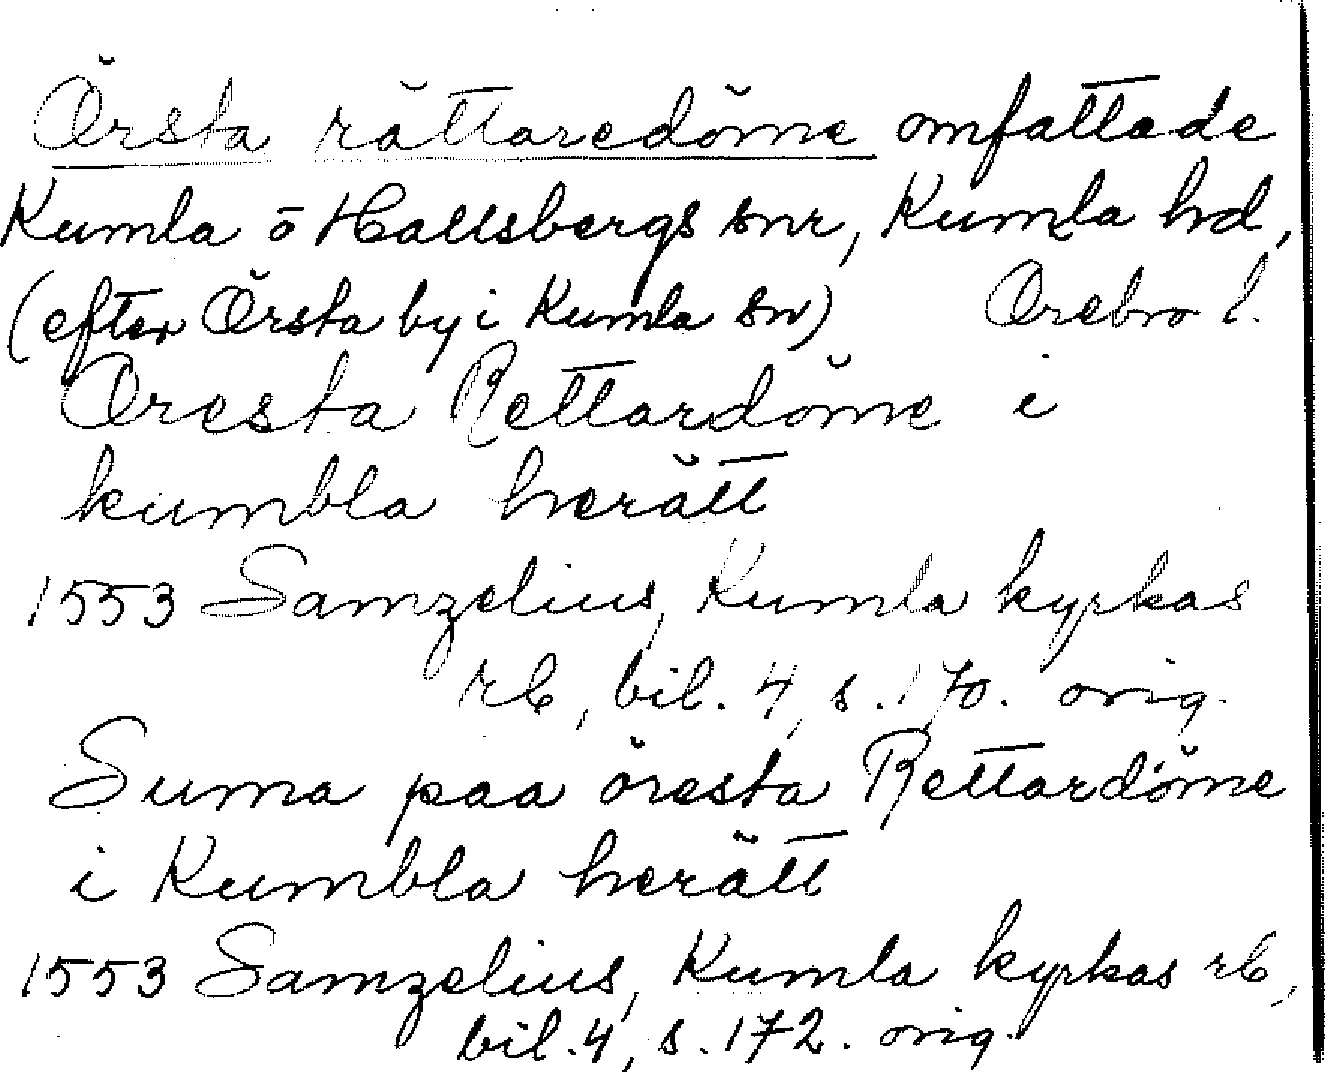 Örsta rättaredöme omfattade
Kumla o Hallsbergs snr, Kumla hd,
(efter Örsta by i Kumla sn) Örebro l.
Oresta Rettardöme i
kumbla herätt
1553 Samzelius, Kumla kyrkas
rb, bil. 4, s. 170. orig.
Suma paa öresta Rettardöme
i Kumbla herätt
1553 Samzelius, Kumla kyrkas rb,
bil. 4, s. 172. orig.